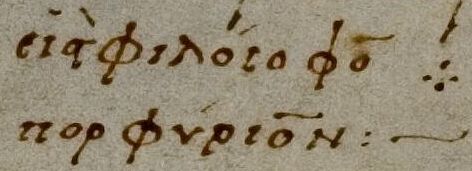 εἰς φιλόσοφο
πορφύριον :